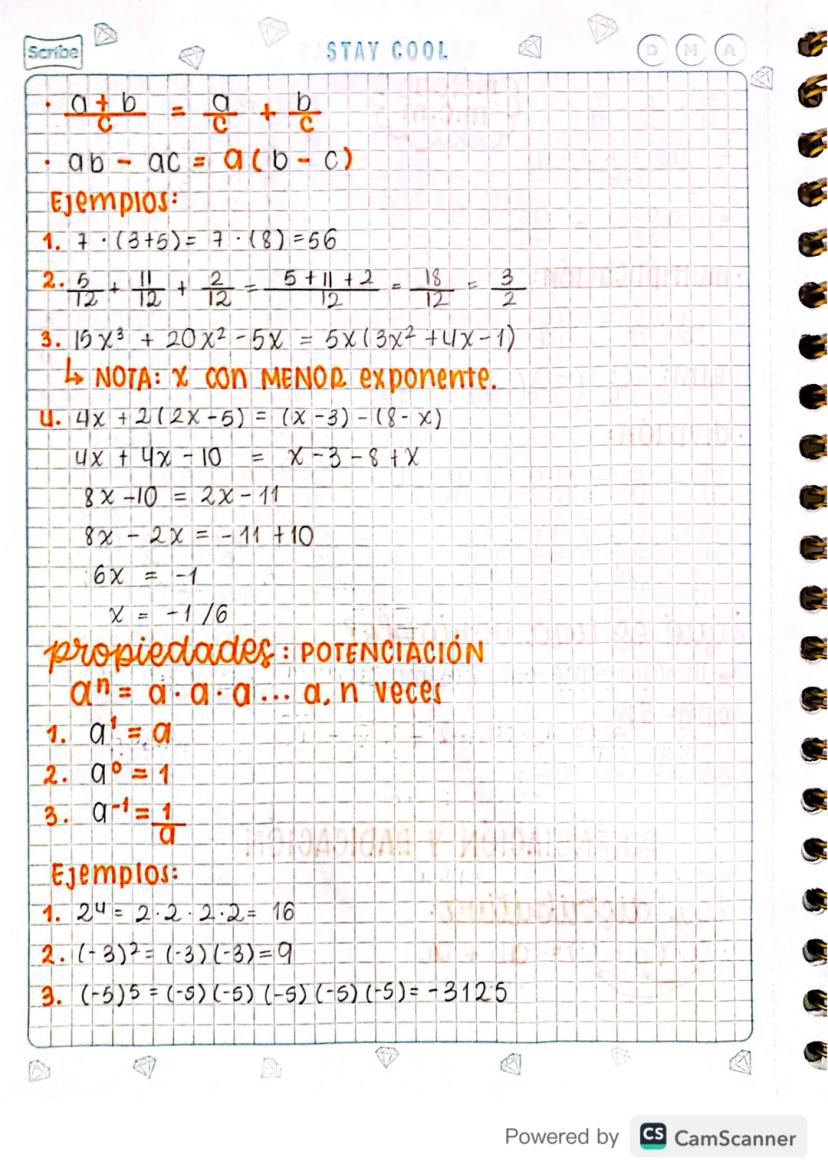 Scribe
STAY COOL
D M A
· (a + b)/c = a/c + b/c
· ab - ac = a(b - c)
Ejemplos:
1. 7 · (3+5) = 7 · (8) = 56
2. 5/12 + 11/12 + 2/12 = (5 + 11 + 2)/12 = 18/12 = 3/2
3. 15x³ + 20x² - 5x = 5x(3x² + 4x - 1)
↳ NOTA: x con MENOR exponente.
4. 4x + 2(2x - 5) = (x - 3) - (8 - x)
4x + 4x - 10 = x - 3 - 8 + x
8x - 10 = 2x - 11
8x - 2x = - 11 + 10
6x = -1
x = -1/6
propiedades: POTENCIACIÓN
aⁿ = a · a · a ... a, n veces
1. a¹ = a
2. a⁰ = 1
3. a⁻¹ = 1/a
Ejemplos:
1. 2⁴ = 2 · 2 · 2 · 2 = 16
2. (-3)² = (-3)(-3) = 9
3. (-5)5 = (-5)(-5)(-5)(-5)(-5) = -3125
Powered by CS CamScanner